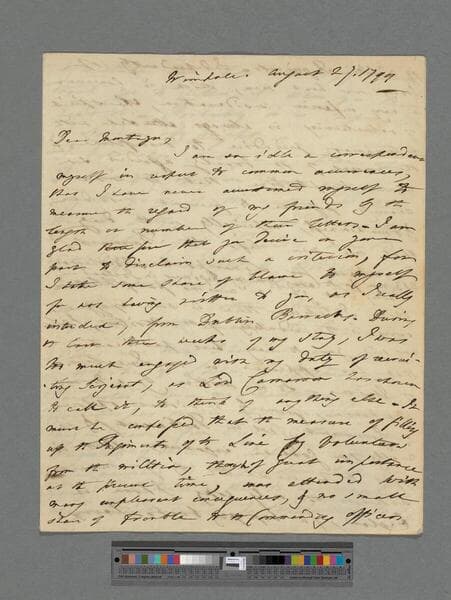 August 27. 1799
Dear Montagu,
I am so idle a correspondent
myself in respect to common occurrences,
that I have never accustomed myself to
measure the regard of my friends by the
length or number of their letters. I am
glad to see that you desire on your
part to disclaim such a criterion, for
I take some share of blame to myself
for not having written to you, as I really
intended, from Dublin Barracks. During
the last three weeks of my stay, I was
too much engaged with my duty of recrui-
ting Serjeant, as Lord Cameron has chosen
to call it, to think of anything else. It
must be confessed that the measure of filling
up the Regiments of the Line by volunteers
from the militia, though of great importance
at the present time, was attended with
many unpleasant consequences, & no small
share of trouble to the Commanding officers